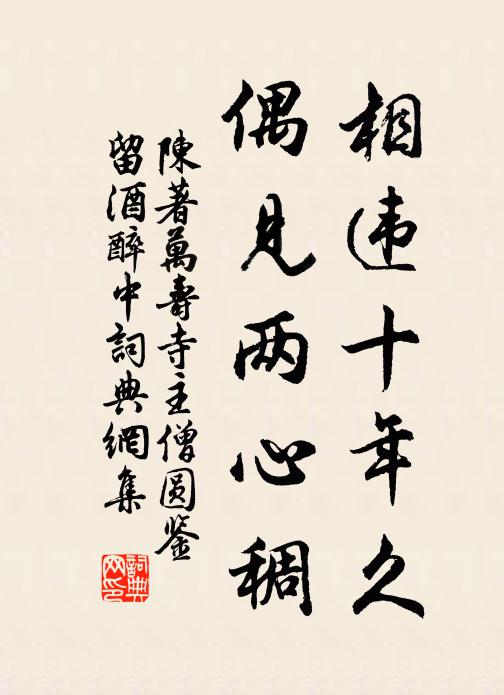 相违十年久
偶见两心稠
陳著萬壽寺主僧圆鉴
留酒醉中詞典網集
詞典
网印